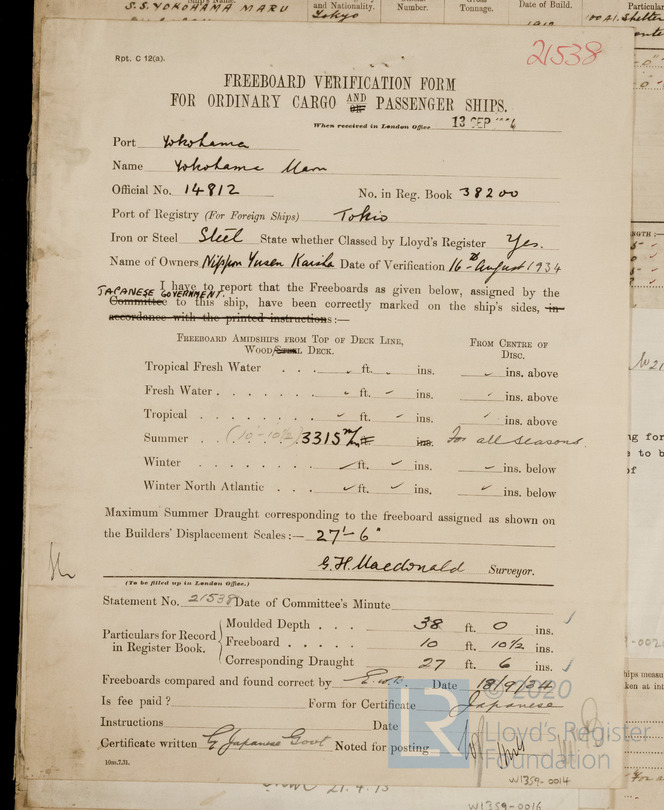 S.S. YOKOHAMA MARU
and Nationality.
Number.
Tonnage.
Date of Build.
Particular
Tokyo
100 A1. Shelter
21538
Rpt. C 12(a).
FREEBOARD VERIFICATION FORM
FOR ORDINARY CARGO AND PASSENGER SHIPS.
When received in London Office 13 SEP
Port Yokohama
Name Yokohama Maru
Official No. 14812 No. in Reg. Book 38200
Port of Registry (For Foreign Ships) Tokio
Iron or Steel Steel State whether Classed by Lloyd's Register Yes.
Name of Owners Nippon Yusen Kaisha Date of Verification 16th August 1934
I have to report that the Freeboards as given below, assigned by the
JAPANESE GOVERNMENT.
Committee to this ship, have been correctly marked on the ship's sides, in
accordance with the printed instructions:—
FREEBOARD AMIDSHIPS FROM TOP OF DECK LINE,
WOOD/STEEL DECK.
FROM CENTRE OF
DISC.
Tropical Fresh Water . . . ft. ins. ins. above
Fresh Water . . . . . . ft. ins. ins. above
Tropical . . . . . . . ft. ins. ins. above
Summer . . (10'-10½) 3315 m/m ft. ins. for all seasons.
Winter . . . . . . . ft. ins. ins. below
Winter North Atlantic . . . . ft. ins. ins. below
Maximum Summer Draught corresponding to the freeboard assigned as shown on
the Builders' Displacement Scales:— 27'-6"
G.H. Macdonald Surveyor.
(To be filled up in London Office.)
Statement No. 21538 Date of Committee's Minute
Particulars for Record
in Register Book.
Moulded Depth . . . 38 ft. 0 ins.
Freeboard . . . . . 10 ft. 10½ ins.
Corresponding Draught 27 ft. 6 ins.
Freeboards compared and found correct by Date 18/9/34
Is fee paid? Form for Certificate Japanese
Instructions Date
Certificate written By Japanese Govt Noted for posting
10m,7,31.
© 2020
LR
Lloyd's Register
Foundation
W1359-0014
W1359-0016